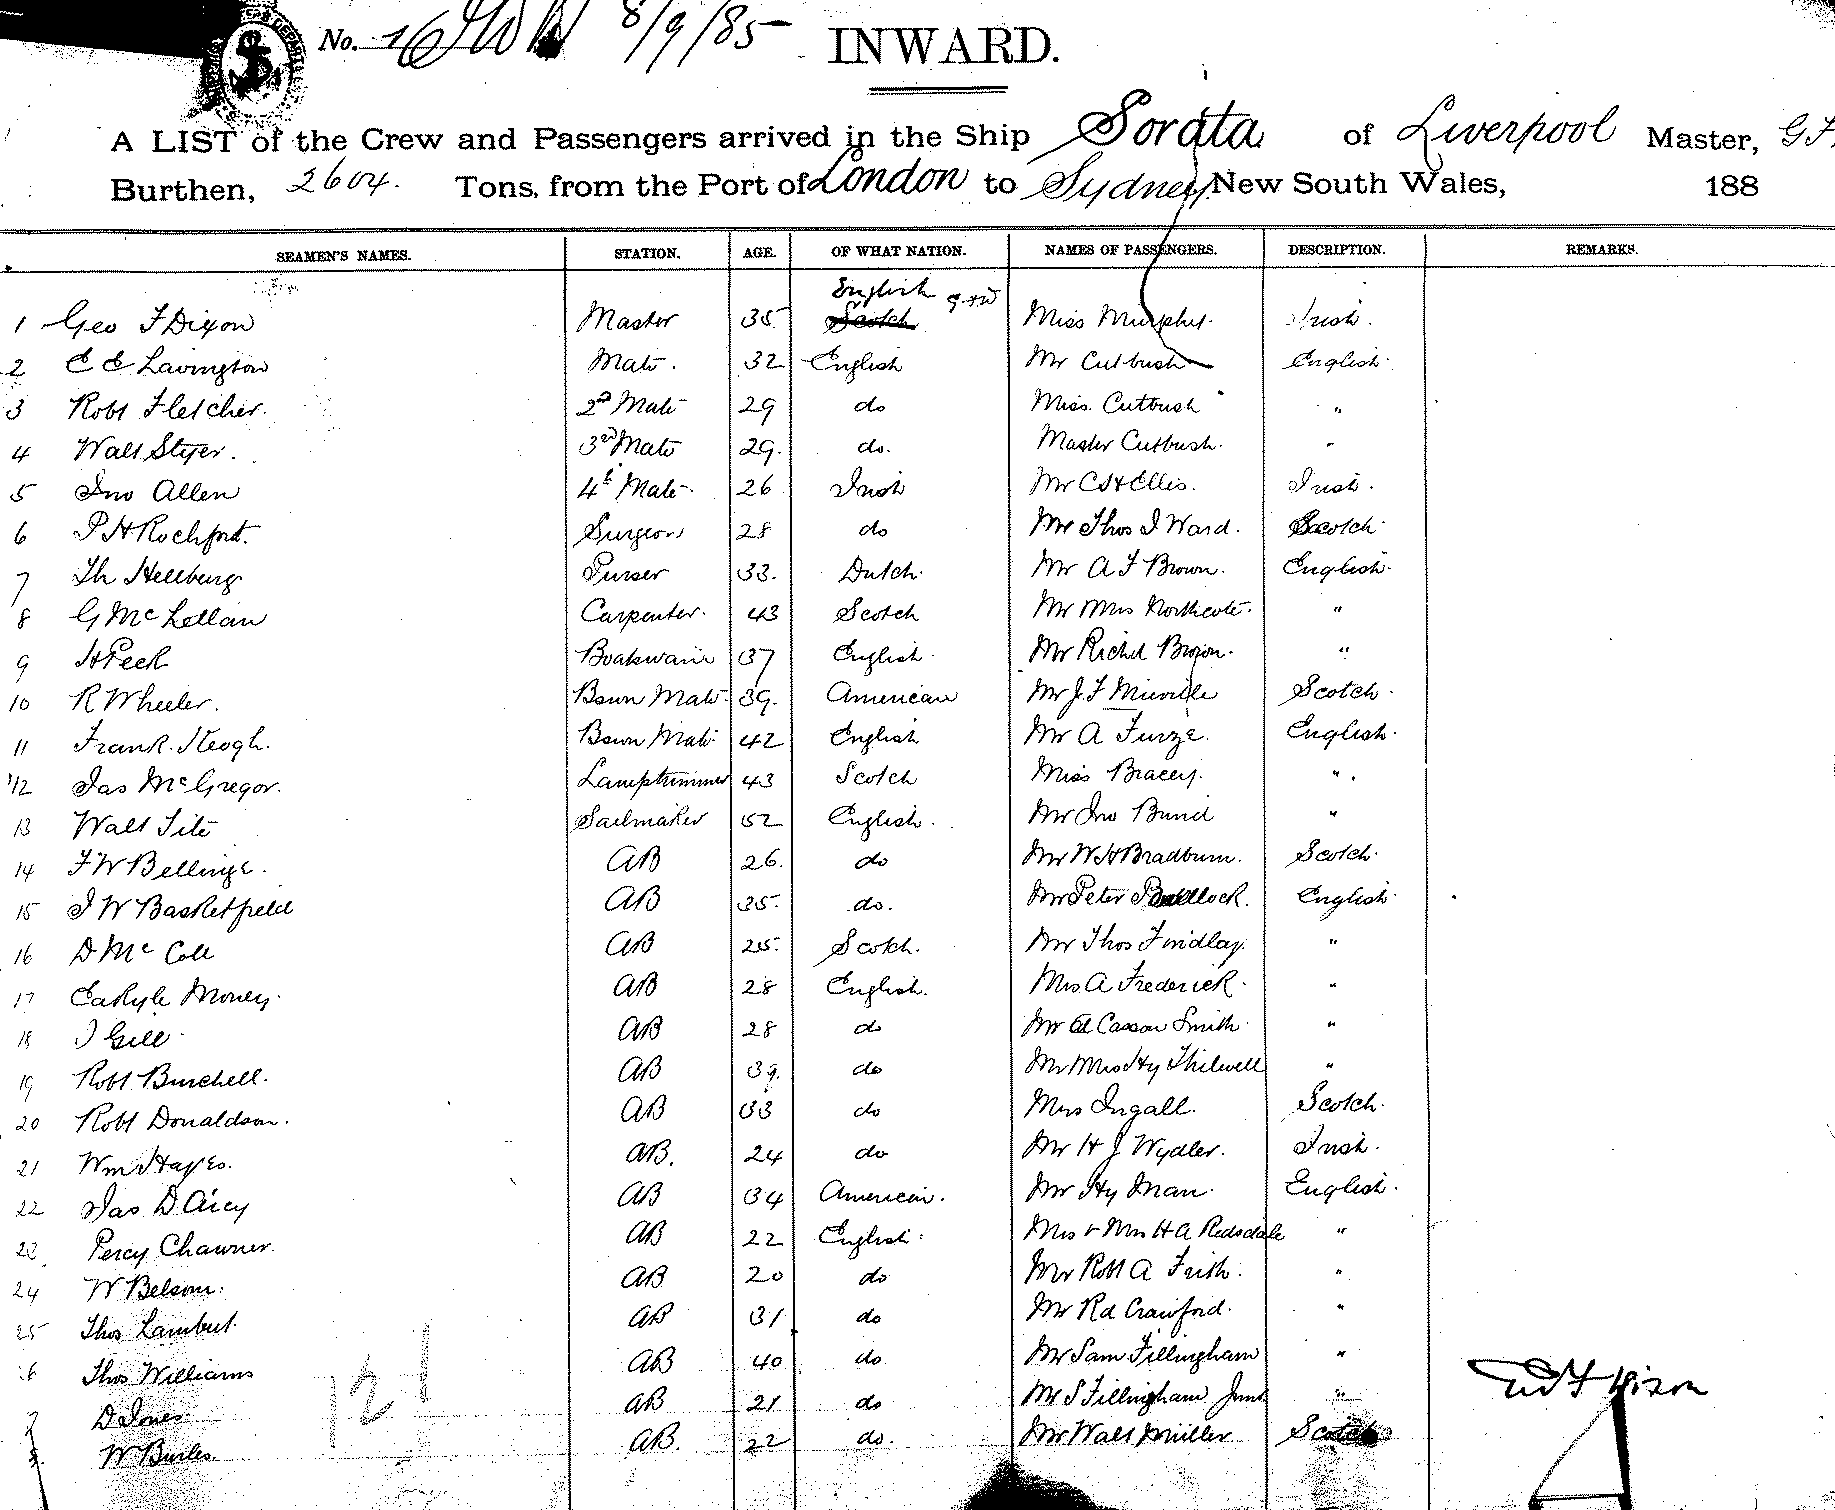 No. 8/9/85 INWARD.
A LIST of the Crew and Passengers arrived in the Ship Sorata of Liverpool Master, G F
Burthen, 2604. Tons, from the Port of London to Sydney New South Wales, 188
SEAMEN'S NAMES. STATION. AGE. OF WHAT NATION. NAMES OF PASSENGERS. DESCRIPTION. REMARKS.
English
1 Geo F Dixon Master 35 Scotch Miss Murphy. Irish.
2 E E Lavington Mate. 32 English Mr Cutbush English.
3 Robt Fletcher. 2nd Mate 29 do Miss. Cutbush "
4 Walt Styer. 3rd Mate 29. do. Master Cutbush. "
5 Jno Allen 4th Mate. 26 Irish Mr C H Ellis. Irish.
6 P H Rochfort. Surgeon 28 do Mr Thos J Ward. Scotch.
7 Th Hellberg Purser 33. Dutch. Mr A F Brown. English.
8 G McLellan Carpenter. 43 Scotch Mr Mrs Northcote. "
9 H Peek Boatswain 37 English. Mr Richd Brown. "
10 R Wheeler. Bswn Mate. 39. American Mr J F Mieville Scotch.
11 Frank. Keogh. Bswn Mate 42 English Mr A Furze. English.
12 Jas McGregor. Lamptrimmer 43 Scotch Miss Bracey. ".
13 Walt Tite Sailmaker 52 English. Mr Jno Bund "
14 F W Bellinge. AB 26. do Mr W H Bradburn. Scotch.
15 J W Basketfield AB 35. do. Mr Peter English
16 D McColl AB 25. Scotch. Mr Thos Findlay. "
17 Carlyle Money. AB 28 English. Mrs A Frederick. "
18 J Gill AB 28 do Mr Casson Smith. "
19 Robt Burchell. AB 39. do Mr Mrs Hy Thilwell "
20 Robt Donaldson. AB 33 do Mrs Ingall. Scotch.
21 Wm Hayes. AB. 24 do Mr H J Wydler. Irish.
22 Jas D'Arcy AB 34 American. Mr Hy Man. English.
23 Percy Chawner. AB 22 English. Mrs & Mrs H A Redsdale "
24 W Belsom. AB 20 do Mr Robt A Frith. "
25 Thos Lambert. AB 31 do Mr Rd Crawford. "
26 Thos Williams AB 40 do Mr Sam Fillingham "
7 D Jones AB 21 do Mr S Fillingham Junr "
W Burles. AB. 22 do. Mr Walt Miller Scotch
121
Dixon